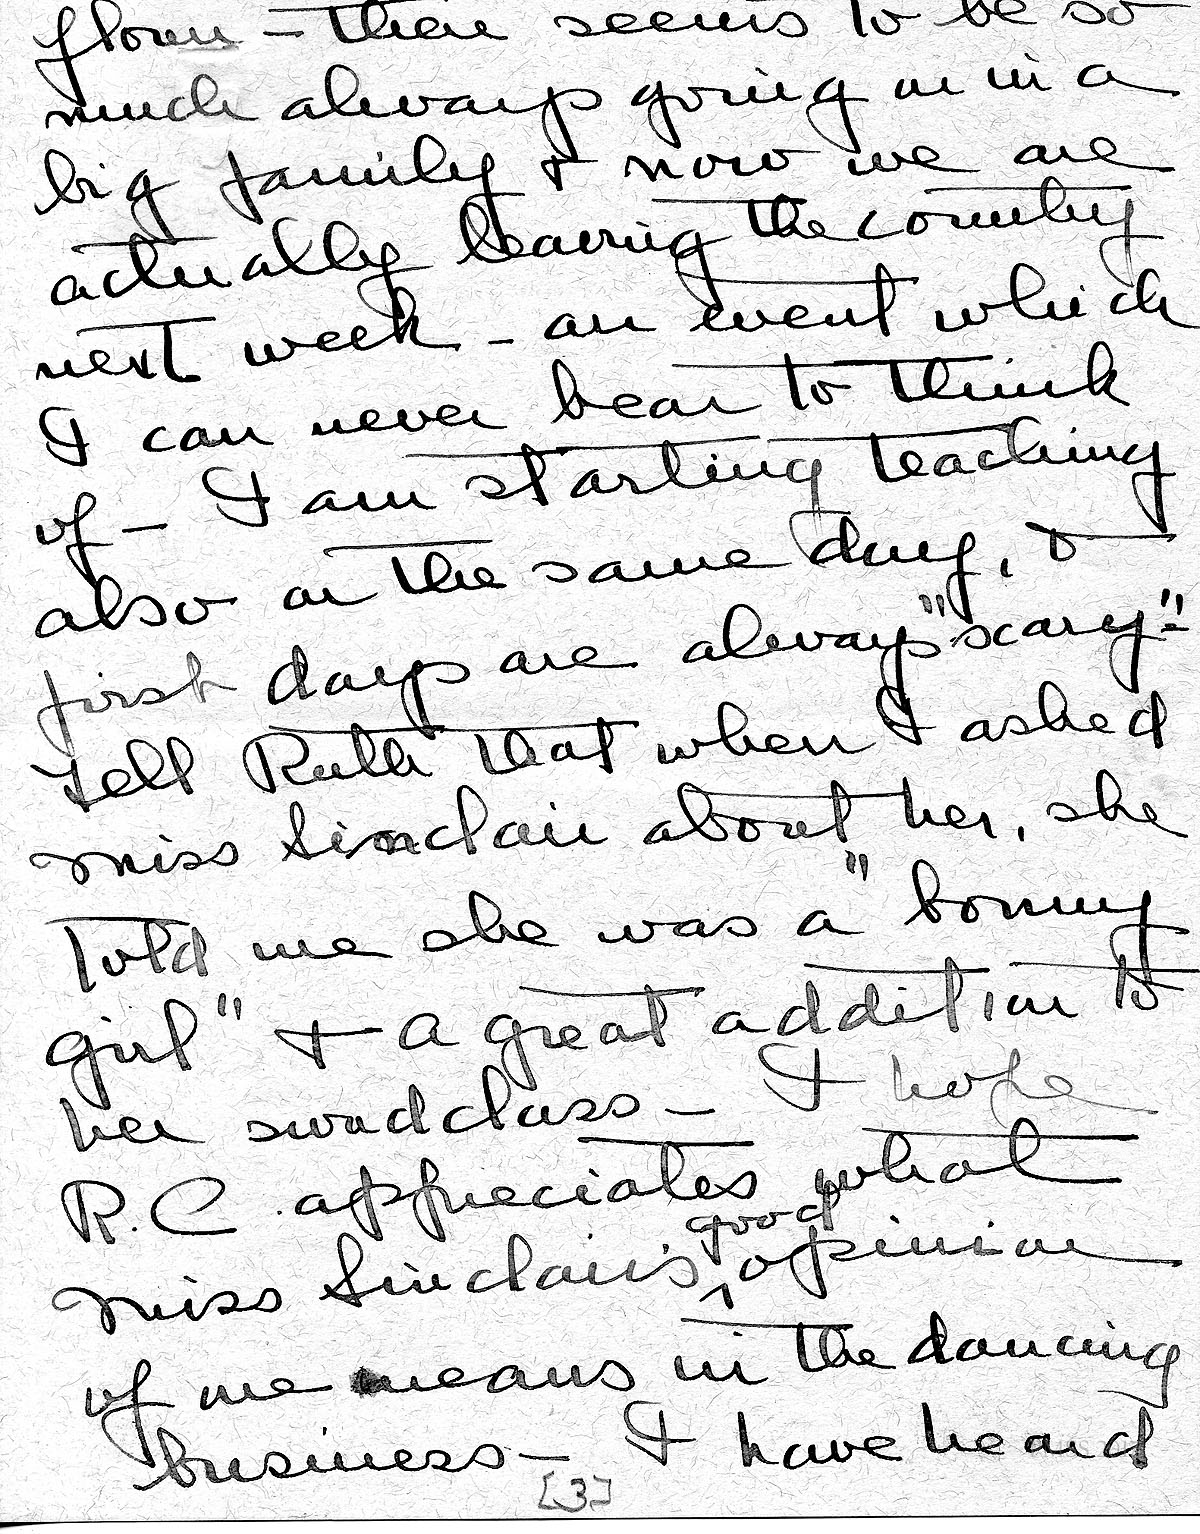 flown – there seems to be so
much always going on in a
big family & now we are
actually leaving the country
next week – an event which
I can never bear to think
of – I am starting teaching
also on the same day, &
first days are always "scary" –
Tell Ruth that when I asked
Miss Sinclair about her, she
told me she was a "bonny
girl" & a great addition to
her class –  I hope
R.C. appreciates what
Miss Sinclair's good opinion
of me means in the dancing
business – I have heard
[3]